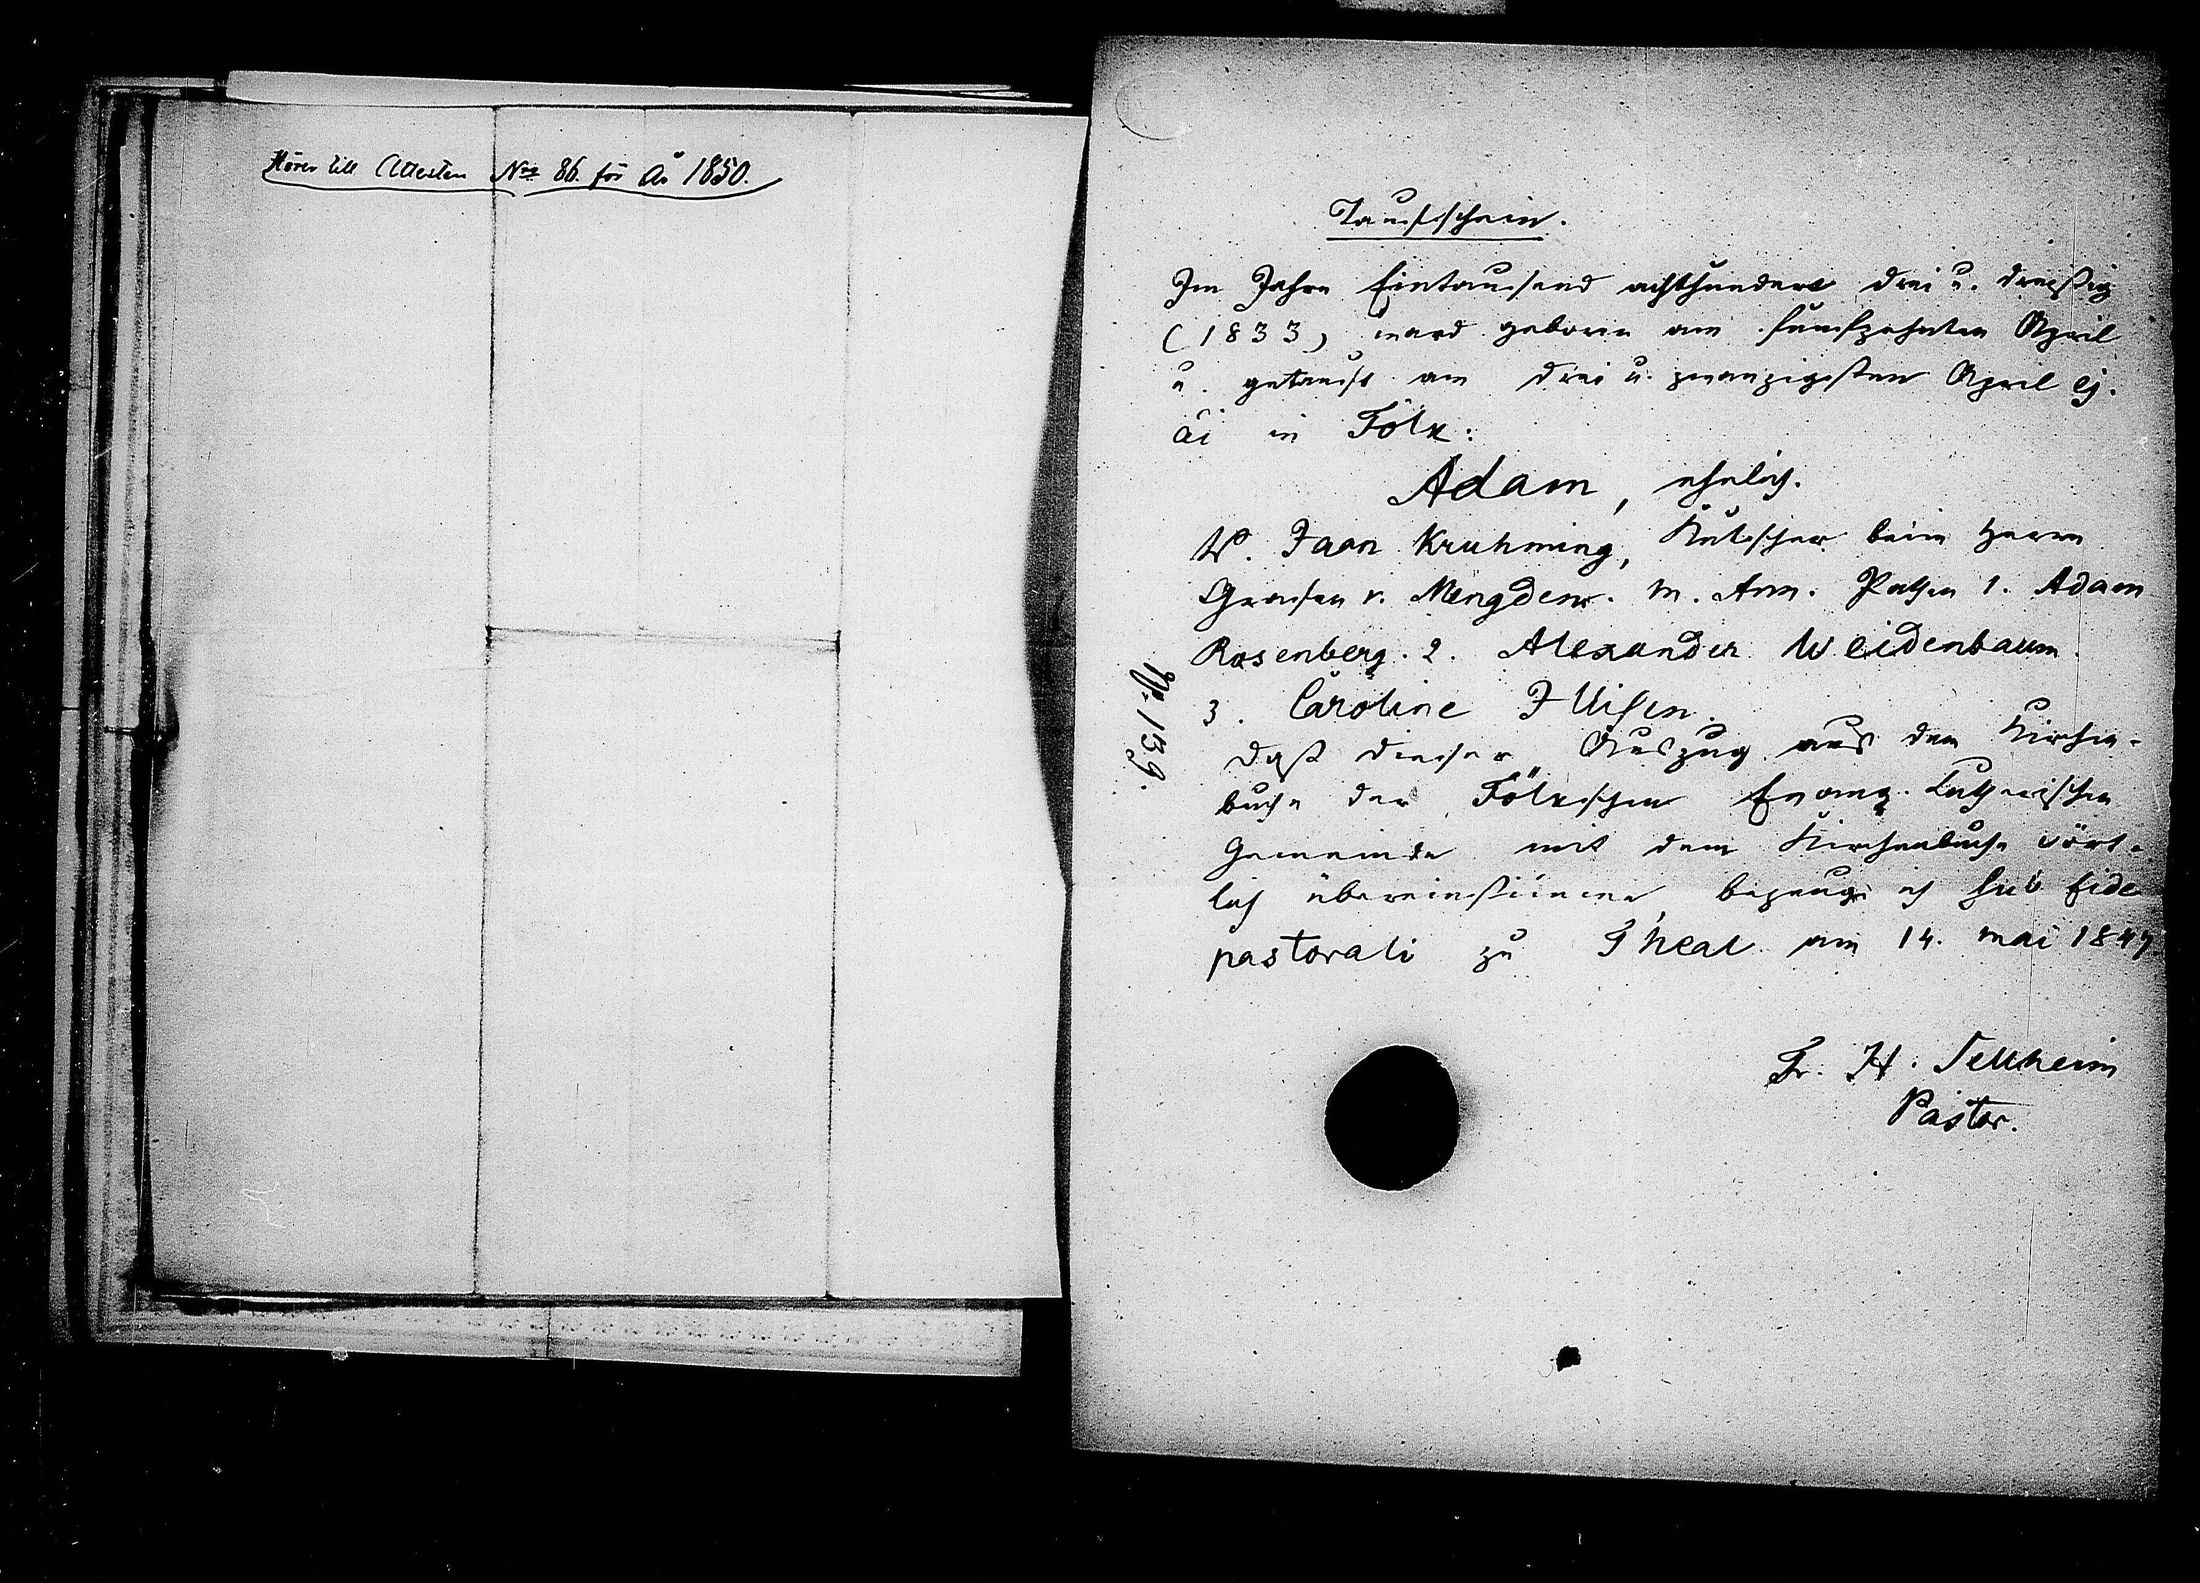 Hörer till Attesten No 86. för År 1850.
Taufschein.
Im Jahre Eintausend achthundert drei u. dreißig
(1833) ward geboren am fünfzehnten April
u. getauft am drei u. zwanzigsten April ej.
ai in Fölk:
Adam, ehelich.
V. Jaan Kruhming, Kutscher beim Herrn
Grafen v. Mengden. M. Ann. Pathen 1. Adam
Rosenberg. 2. Alexander Weidenbaum.
3. Caroline
Daß dieser Auszug aus dem Kirchen-
buche der Fölkschen Evang. Lutherischen
Gemeinde mit dem Kirchenbuche wört-
lich übereinstimme, bezeuge ich sub fide
pastorali zu Theal am 14. Mai 1847.
Fr. H. Sellheim
Pastor.
No 139.